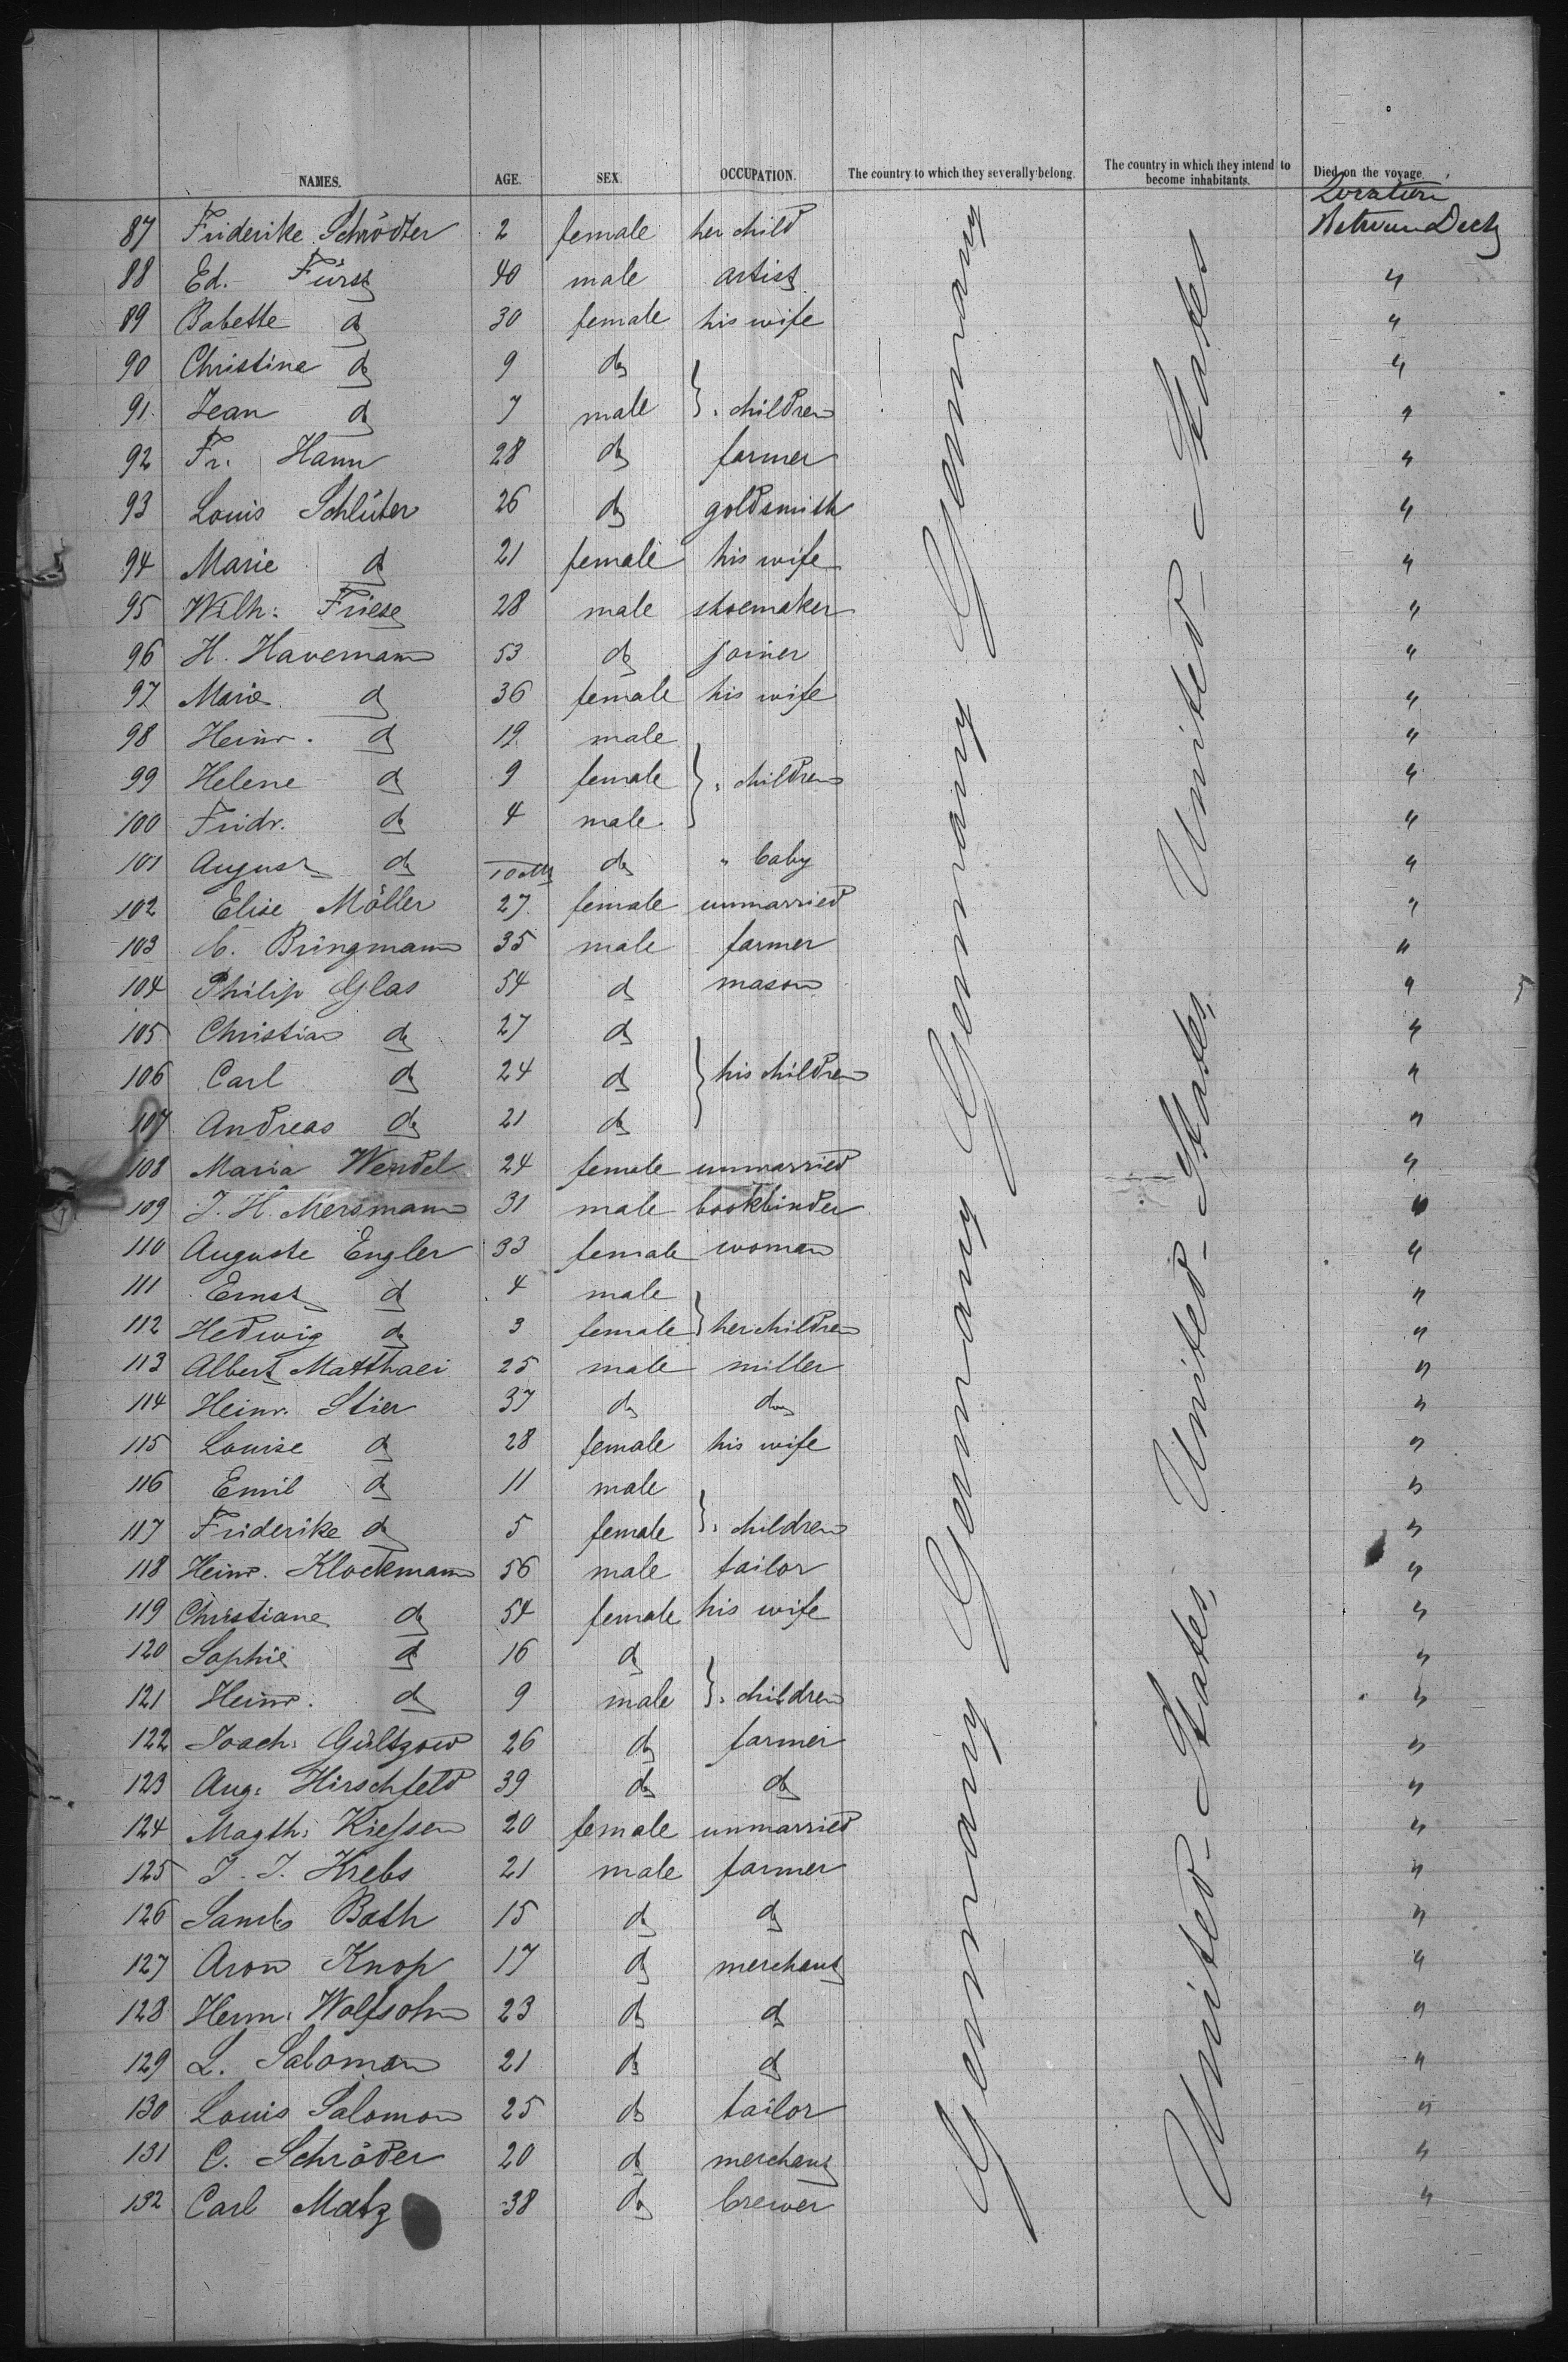 NAMES. AGE. SEX. OCCUPATION. The country to which they severally belong. The country in which they intend to become inhabitants. Died on the voyage.
Location
87 Friderike Schrödter 2 female her child Between Deck
88 Ed. Fürst 40 male artist "
89 Babette do 30 female his wife "
90 Christine do 9 do "
91. Jean do 7 male } " children "
92 Fr. Hann 28 do farmer "
93 Louis Schlüter 26 do goldsmith "
94 Marie do 21 female his wife "
95 Wilh: Friese 28 male shoemaker "
96 H. Havemann 53 do joiner "
97 Marie do 36 female his wife "
98 Heinr. do 19 male "
99 Helene do 9 female } " children "
100 Fridr. do 4 male "
101 August do 10 Mts do " baby "
102 Elise Möller 27 female unmarried "
103 C. Bringmann 35 male farmer "
104 Philip Glas 54 do mason "
105 Christian do 27 do "
106 Carl do 24 do } his children "
107 Andreas do 21 do "
108 Maria Wendel 24 female unmarried "
109 J. H. Mersmann 31 male bookbinder "
110 Auguste Engler 33 female woman "
111 Ernst do 4 male "
112 Hedwig do 3 female } her children "
113 Albert Matthaei 25 male miller "
114 Heinr. Stier 37 do do "
115 Louise do 28 female his wife "
116 Emil do 11 male "
117 Friderike do 5 female } " children "
118 Heinr. Klockmann 56 male tailor "
119 Christiane do 54 female his wife "
120 Sophie do 16 do "
121 Heinr. do 9 male } " children "
122 Joach: Gültzow 26 do farmer "
123 Aug: Hirschfeld 39 do do "
124 Magth: Kiessen 20 female unmarried "
125 J. J. Krebs 21 male farmer "
126 Bath 15 do do "
127 Aron Knop 17 do merchant "
128 Herm: Wolfsohn 23 do do "
129 L. Salomon 21 do do "
130 Louis Salomon 25 do tailor "
131 C. Schröder 20 do merchant "
132 Carl Matz 38 do brewer "
Germany Germany Germany Germany Germany
United States United States, United States